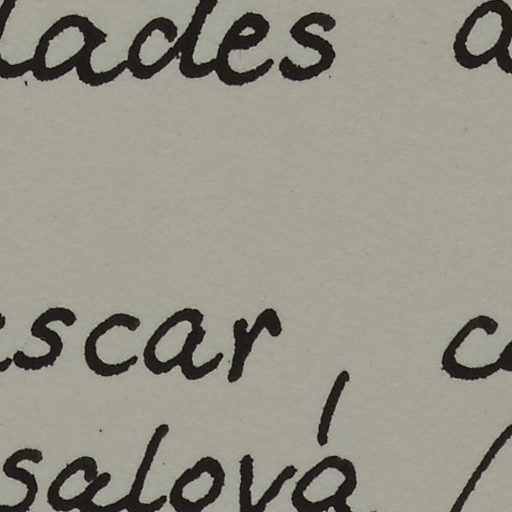 lades a
escar, c
salová (